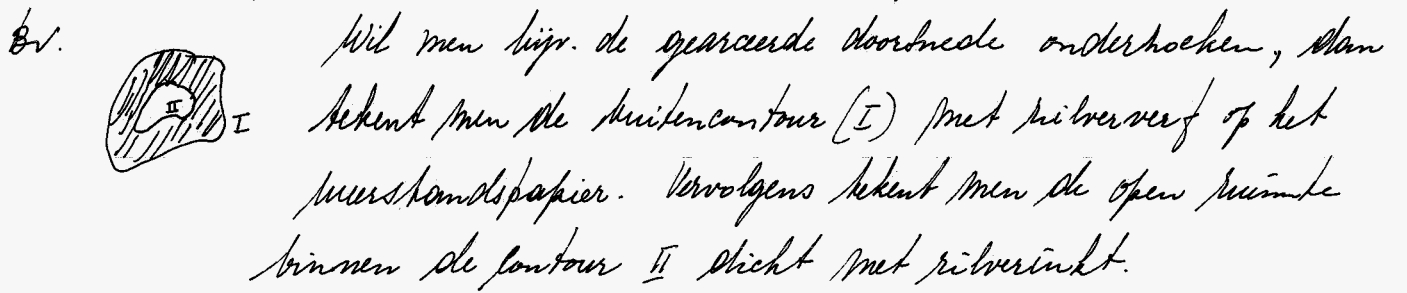 Bv. Wil men bijv. de gearceerde doorsnede onderzoeken, dan
II I tekent men de buitencontour (I) met zilververf op het
weerstandspapier. Vervolgens tekent men de open ruimte
binnen de contour II dicht met zilverinkt.